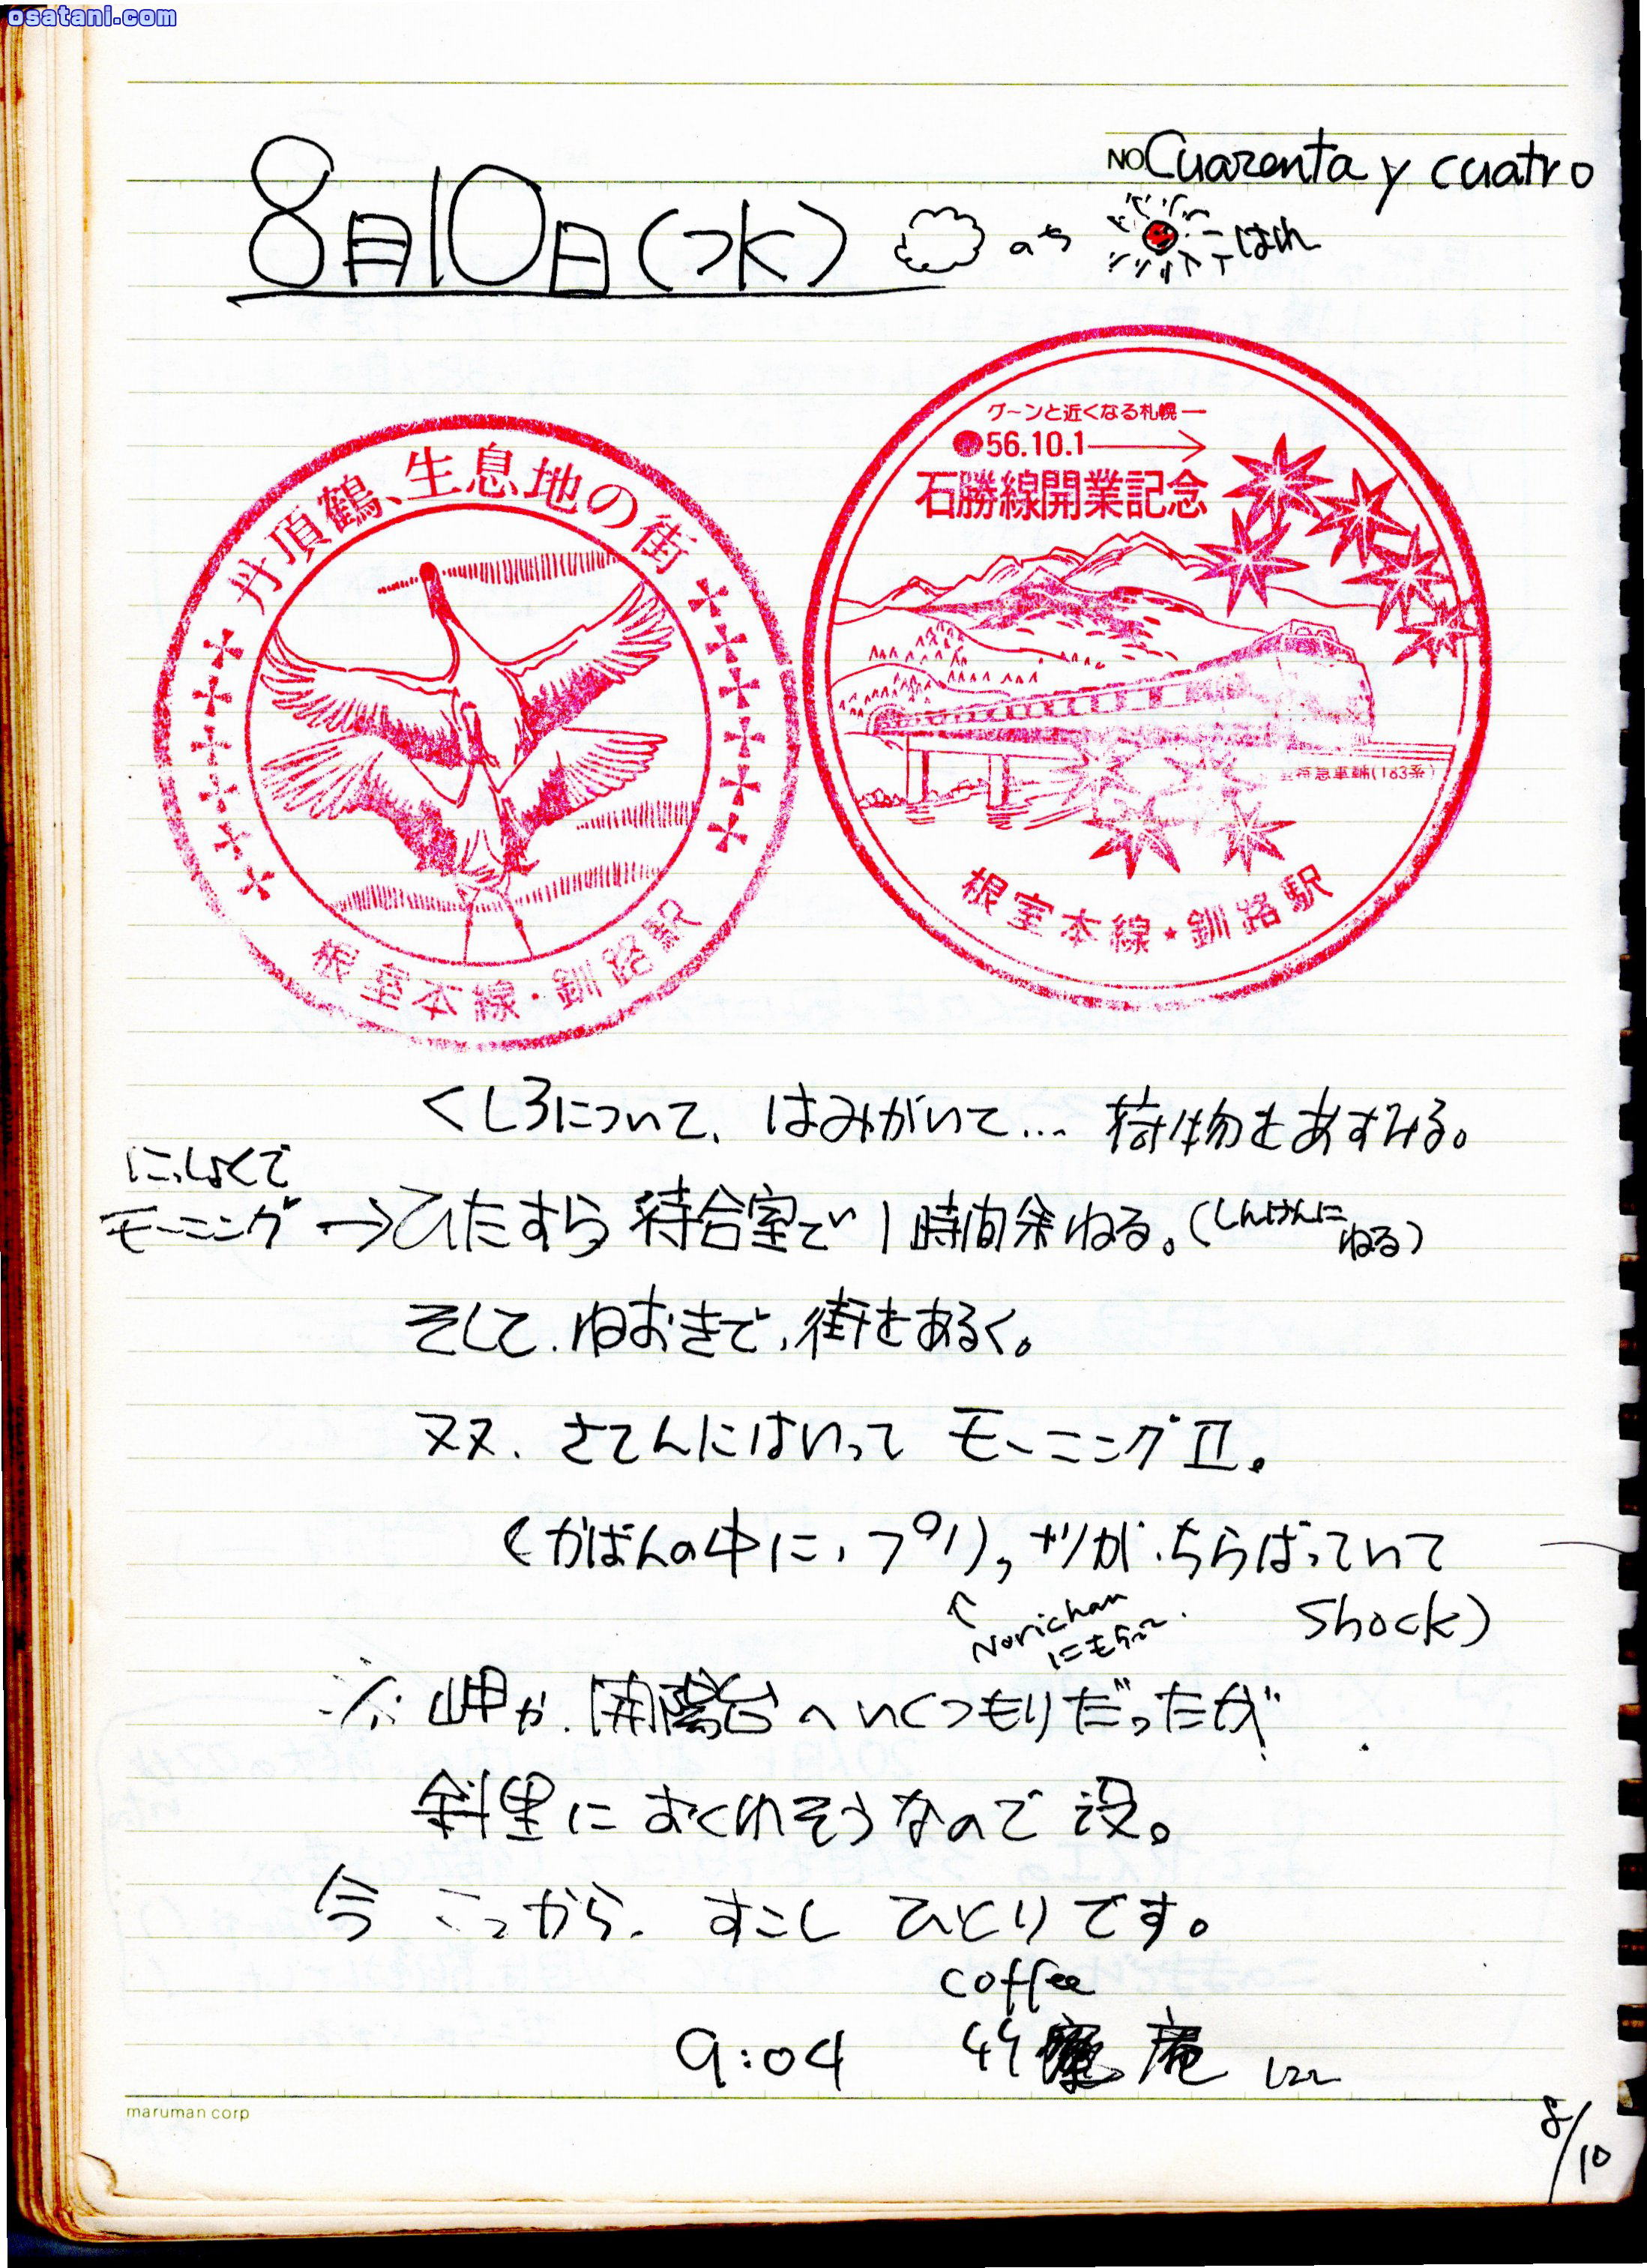 osatani.com
NO Cuarenta y cuatro
8月10日(水) のち はれ
グーンと近くなる札幌
56.10.1
石勝線開業記念
特急車輛(183系)
根室本線★釧路駅
丹頂鶴、生息地の街
根室本線・釧路駅
くしろについて、はみがいて… 荷物をあずける。
にしょくで
モーニング →ひたすら 待合室で 1時間余ねる。(しんけんに
ねる)
そして、ねおきで、街をあるく。
又又、さてんにはいって モーニングⅡ。
(かばんの中に、プリッツが、ちらばっていて
↑Norichan
にもらった
Shock)
※岬か、開陽台へいくつもりだったが
斜里におくれそうなので 没。
今 こっから、すこし ひとりです。
coffee
9:04 竹 庵 にて
maruman corp
8/10